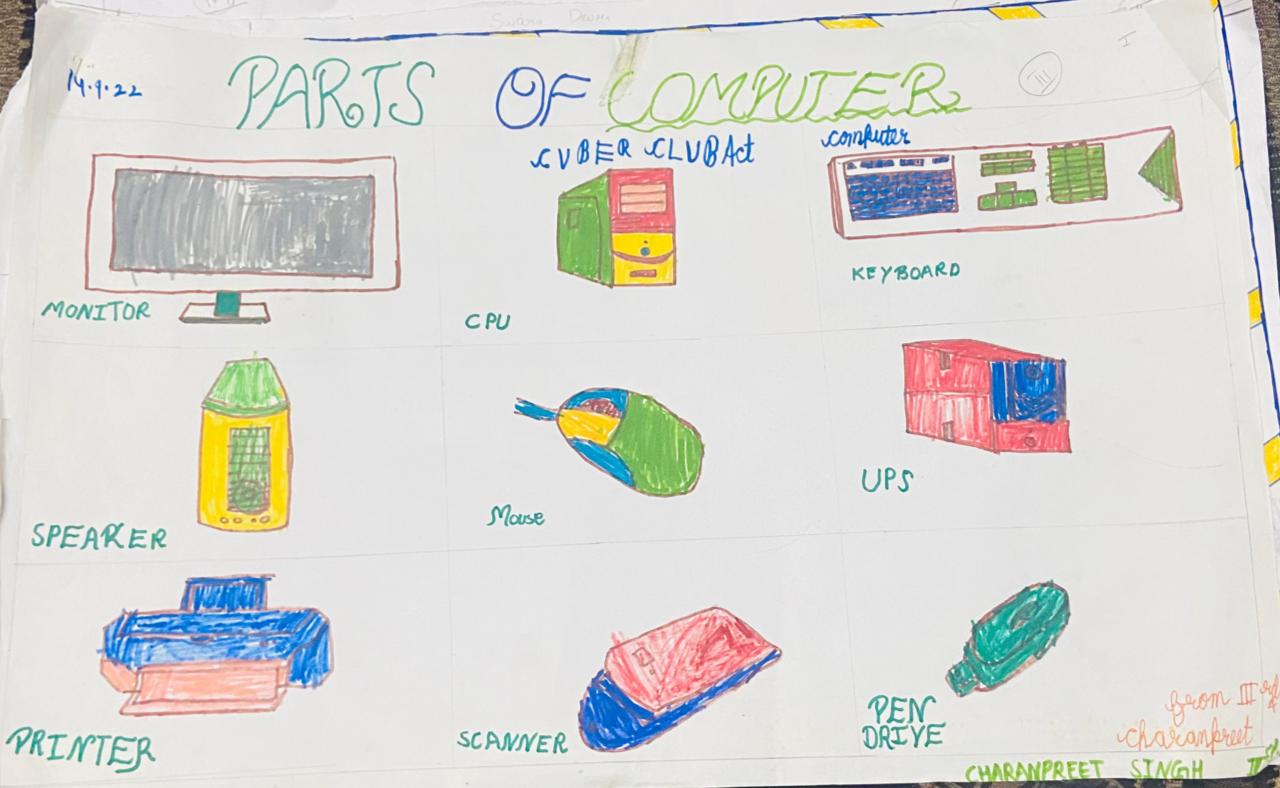 14.9.22
PARTS OF COMPUTER
III
I
CVBER CLUB Act
computer
MONITOR
CPU
KEYBOARD
SPEAKER
Mouse
UPS
PRINTER
SCANNER
PEN
DRIVE
from III rd
charanpreet
CHARANPREET SINGH